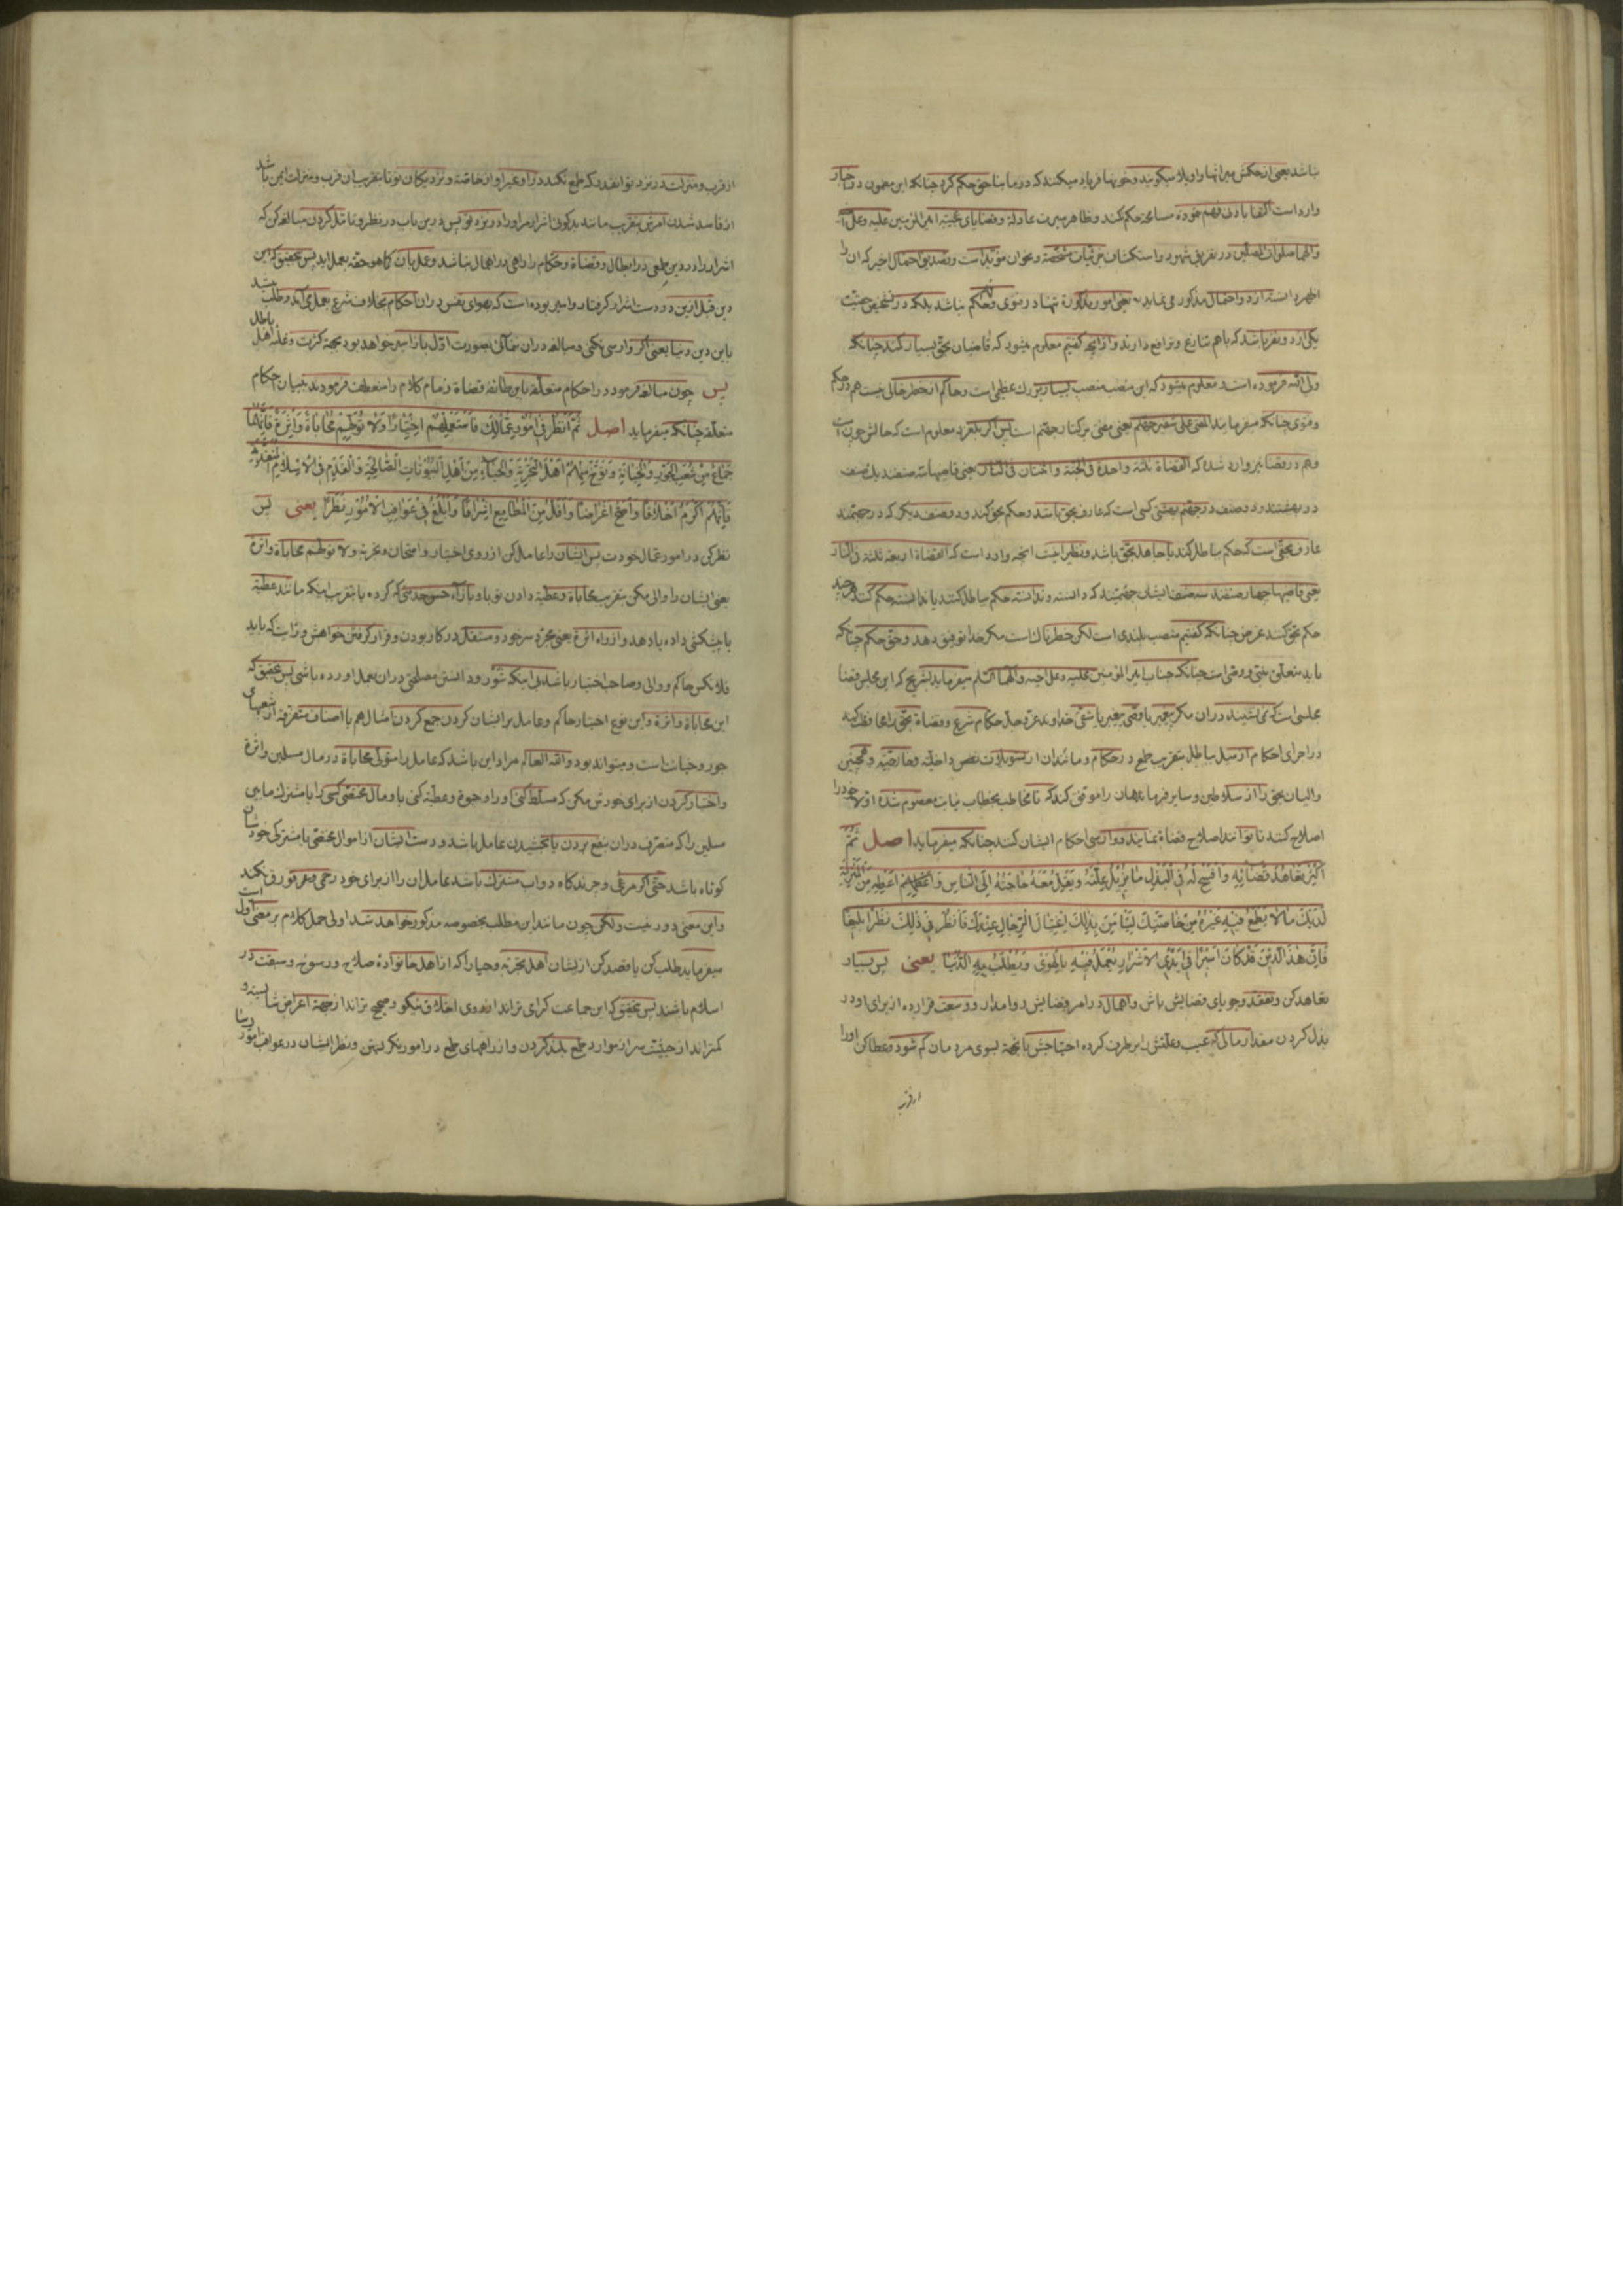 نباشد یعنی از حکمش میراثها واویلا میگویند و خونها فریاد میکنند که در ما بناحق حکم کرد چنانکه این مضمون در اخبار
وارد است اکتفا بادنی فهم نموده مسامحه حکم نکند و ظاهر سیرت عادله و قضایای عجیبه امیرالمؤمنین علیه و علی
والهما صلوات المصلین در تفریق شهود و استکشاف جزئیات مشخصه و نحو ان مؤید است و تصدیق احتمال اخیر که ان را
اظهر دانسته از دو احتمال مذکور می نماید یعنی امور مذکوره تنها در فتوی و حکم نباشد بلکه در تشخیص حقیت
یکی از دو نفر باشد که با هم تنازع و ترافع دارند و از انچه گفتیم معلوم میشود که قاضیان بحق بسیار کمند چنانکه
ولی الله فرموده است و معلوم میشود که این منصب منصب بسیار بزرگ عظیمی است و حاکم از خطر خالی نیست هم در حکم
و فتوی چنانکه میفرمایند المفتی علی شفیر جهنم یعنی مفتی بر کنار جهنم است پس اگر بلغزد معلوم است که حالش چون است
و هم در قضا نیز وارد شده که القضاة ثلثة واحدة فی الجنة و اثنتان فی النار یعنی قاضیها سه صنفند یک صنف
در بهشتند و دو صنف در جهنم بهشتی کسی است که عارف بحق باشد و حکم بحق کند و دو صنف دیگر که در جهنمند
عارف بحقی است که حکم بباطل کند یا جاهل بحق باشد و نظیر اینست انچه وارد است که القضاة اربعة ثلثة فی النار
یعنی قاضیها چهار صنفند سه صنف ایشان جهنمیند که دانسته و ندانسته حکم بباطل کنند یا ندانسته حکم کنند هر چند
حکم بحق کنند غرض چنانکه گفتیم منصب بلندی است لکن خطرناک است مگر خدا توفیق دهد و حق حکم چنانکه
باید متعلق بنبی و وصی است چنانکه جناب امیرالمؤمنین علیه و علی اخیه والهما السلم میفرماید بشریح که این مجلس قضا
مجلسی است که نمی نشیند در ان مگر پیغمبر یا وصی پیغمبر یا شقی خداوند عز و جل حکام شرع و قضاة بحق را محافظت کند
در اجرای احکام از میل بباطل بتقریب طمع در حکام و مانند ان از تسویلات نفس داخلیه و عارضیه و همچنین
والیان بحق را از سلاطین و سایر فرمانروایان را موفق کند که تا مخاطب بخطاب نیابت معصوم شده اولا خود را
اصلاح کنند تا توانند اصلاح قضاة بنمایند و وارسی احکام ایشان کنند چنانکه میفرماید اصل ثُمَّ
اَکْثِرْ تَعَاهُدَ قَضَائِهِ وَافْسَحْ لَهُ فِی الْبَذْلِ مَا یُزِیلُ عِلَّتَهُ وَتَقِلُّ مَعَهُ حَاجَتُهُ اِلَی النَّاسِ وَاَعْطِهِ مِنَ الْمَنْزِلَةِ
لَدَیْکَ مَا لَا یَطْمَعُ فِیهِ غَیْرُهُ مِنْ خَاصَّتِکَ لِیَأْمَنَ بِذَلِکَ اغْتِیَالَ الرِّجَالِ عِنْدَکَ فَانْظُرْ فِی ذَلِکَ نَظَرًا بَلِیغًا
فَاِنَّ هَذَا الدِّینَ قَدْ کَانَ اَسِیرًا فِی اَیْدِی الْاَشْرَارِ یُعْمَلُ فِیهِ بِالْهَوَی وَتُطْلَبُ بِهِ الدُّنْیَا یعنی پس بسیار
تعاهد کن و تفقد و جویای قضایش باش و اهمال در امر قضایش روا مدار و وسعت قرار ده از برای او در
بذل کردن مقدار مالی که عیب و علتش را برطرف کرده احتیاجش بانجهة بسوی مردمان کم شود و عطا کن او را
از قرب
از قرب و منزلت در نزد تو انقدر که طمع نکند در او غیر او از خاصه و نزدیکان تو تا بتقریب ان قرب و منزلت ایمن باشد
از فاسد شدن امرش بتقریب مانند بدگوئی اشرار مر او را در نزد تو پس در این باب در نظر و تامل کردن مبالغه کن که
اشرار را در دین طمعی در ابطال و قضاة و حکام را راهی در اهمال نباشد و عمل بان کما هو حقه بعمل اید پس بتحقیق که این
دین قبل ازین در دست اشرار گرفتار و اسیر بوده است که بهوای نفس در ان احکام بخلاف شرع بعمل می آمد و طلب میشد
باین دین دنیا یعنی اگر وارسی نکنی و مبالغه در ان ننمائی بصورت اول باز اسیر خواهد بود بجهة کثرت و غلبه اهل باطل
پس چون مبالغه فرمود در احکام متعلقه باین طائفه قضاة زمام کلام را منعطف فرمودند ببیان احکام
متعلقه چنانکه میفرماید اصل ثُمَّ انْظُرْ فِی اُمُورِ عُمَّالِکَ فَاسْتَعْمِلْهُمُ اخْتِیَارًا وَلَا تُوَلِّهِمْ مُحَابَاةً وَاَثَرَةً فَاِنَّهُمَا
جِمَاعٌ مِنْ شُعَبِ الْجَوْرِ وَالْخِیَانَةِ وَتَوَخَّ مِنْهُمْ اَهْلَ التَّجْرِبَةِ وَالْحَیَاءِ مِنْ اَهْلِ الْبُیُوتَاتِ الصَّالِحَةِ وَالْقَدَمِ فِی الْاِسْلَامِ الْمُتَقَدِّمَةِ
فَاِنَّهُمْ اَکْرَمُ اَخْلَاقًا وَاَصَحُّ اَعْرَاضًا وَاَقَلُّ مِنَ الْمَطَامِعِ اِشْرَافًا وَاَبْلَغُ فِی عَوَاقِبِ الْاُمُورِ نَظَرًا یعنی پس
نظر کن در امور عمال خودت پس ایشان را عامل کن از روی اختیار و امتحان و تجربه و لا تولهم محاباة و اثرة
یعنی ایشان را والی مکن بتقریب محاباة و عطیه دادن تو باو بازاء حسن خدمتی که کرده یا بتقریب اینکه مانند عطیه
یا پیشکشی داده یا دهد و از راه اثرة یعنی مجرد سرخود و مستقل در کار بودن و قرار گرفتن خواهش و رایت که باید
فلانکس حاکم و والی و صاحب اختیار باشد بی اینکه شور و دانستن مصلحتی در ان بعمل اورده باشی پس بتحقیق که
این محاباة و اثرة و این نوع اختیار حاکم و عامل بر ایشان کردن جمع کردن امثال هم با اصناف متفرقه از شعبهای
جور و خیانت است و میتواند بود والله العالم مراد این باشد که عامل را متولی محاباة در مال مسلمین و اثرة
و اختیار کردن از برای خودش مکن که مسلط کنی او را و رجوع و عطیه کنی باو مال مختصی کسی را یا مشترک ما بین
مسلمین را که متصرف در ان بنفع بردن یا بخشیدن عامل باشد و دست ایشان از اموال مختصی یا مشترکی خودشان
کوتاه باشد حتی اگر مرعی و چرندگاه دواب مشترک باشد عاملان را از برای خود و قورق نکند
و این معنی دور نیست ولکن چون مانند این مطلب بخصوصه مذکور خواهد شد اولی حمل کلام بر معنی اول است
میفرماید طلب کن یا قصد کن از ایشان اهل تجربه و حیا را که از اهل خانواده صلاح و رسوخ و سبقت در
اسلام باشند پس بتحقیق که این جماعت گرامی تراند از روی اخلاق نیکو و صحیح تراند از جهة اعراض شایسته و
کمتراند از حیثیت سر از موارد طمع بلند کردن و از راههای طمع در امور نگریستن و نظر ایشان در عواقب امور رسا